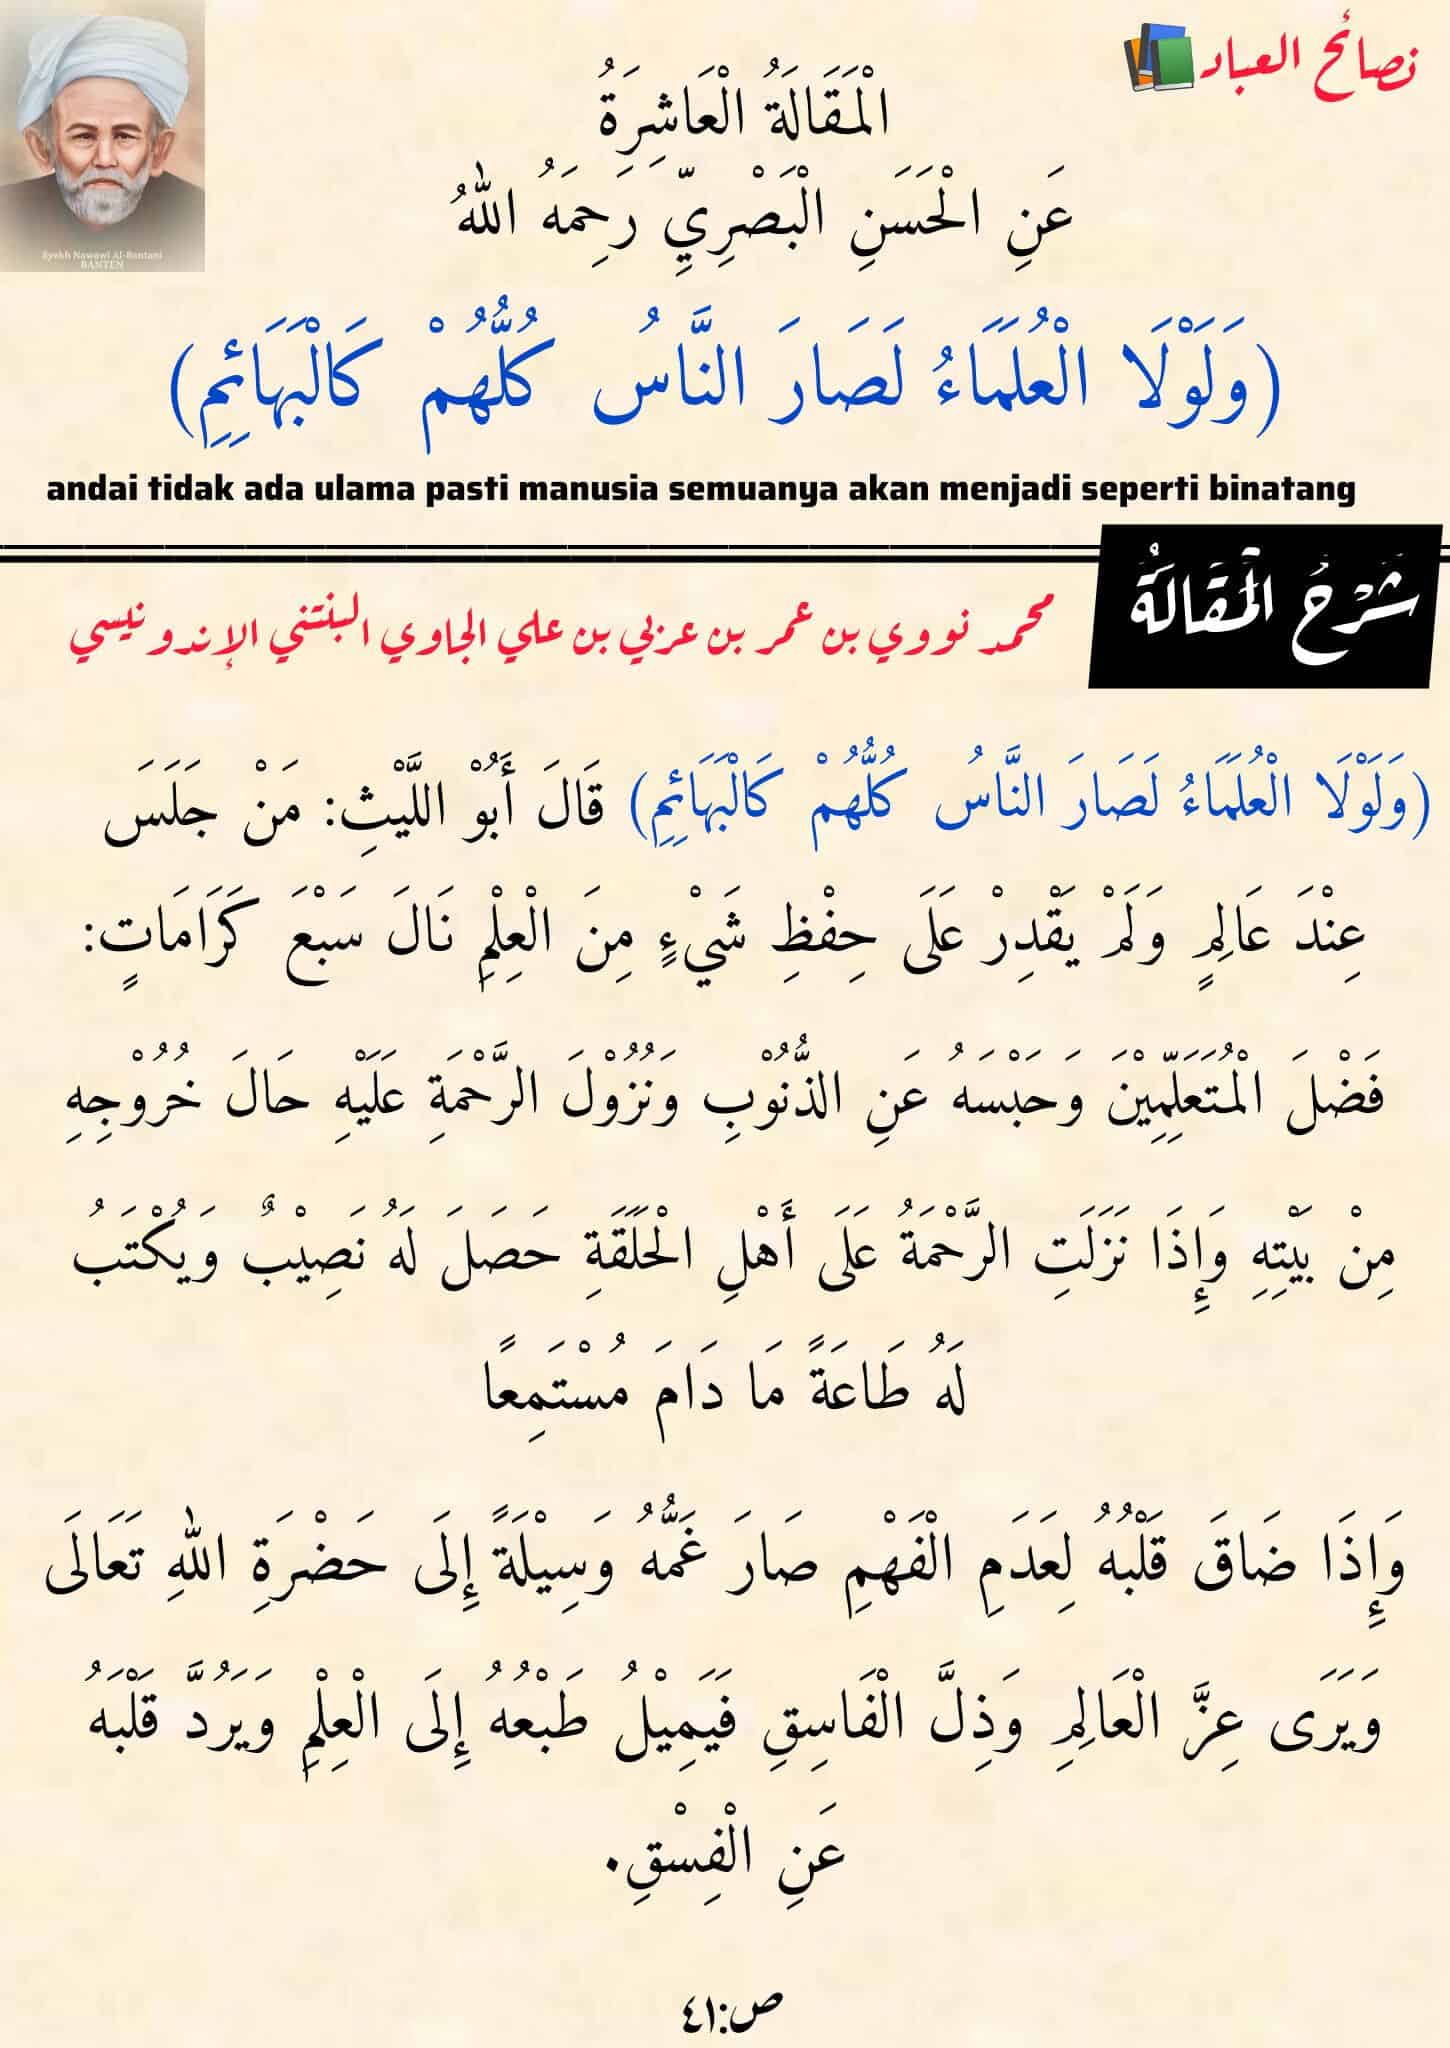 نصائح العباد
الْمَقَالَةُ الْعَاشِرَةُ
عَنِ الْحَسَنِ الْبَصْرِيِّ رَحِمَهُ اللهُ
Syekh Nawawi Al-Bantani
BANTEN
(وَلَوْلَا الْعُلَمَاءُ لَصَارَ النَّاسُ كُلُّهُمْ كَالْبَهَائِمِ)
andai tidak ada ulama pasti manusia semuanya akan menjadi seperti binatang
شَرْحُ الْمَقَالَةُ
محمد نووي بن عمر بن عربي بن علي الجاوي البنتني الإندونيسي
(وَلَوْلَا الْعُلَمَاءُ لَصَارَ النَّاسُ كُلُّهُمْ كَالْبَهَائِمِ) قَالَ أَبُوْ اللَّيْثِ: مَنْ جَلَسَ
عِنْدَ عَالِمٍ وَلَمْ يَقْدِرْ عَلَى حِفْظِ شَيْءٍ مِنَ الْعِلْمِ نَالَ سَبْعَ كَرَامَاتٍ:
فَضْلَ الْمُتَعَلِّمِيْنَ وَحَبْسَهُ عَنِ الذُّنُوْبِ وَنُزُوْلَ الرَّحْمَةِ عَلَيْهِ حَالَ خُرُوْجِهِ
مِنْ بَيْتِهِ وَإِذَا نَزَلَتِ الرَّحْمَةُ عَلَى أَهْلِ الْحَلَقَةِ حَصَلَ لَهُ نَصِيْبٌ وَيُكْتَبُ
لَهُ طَاعَةً مَا دَامَ مُسْتَمِعًا
وَإِذَا ضَاقَ قَلْبُهُ لِعَدَمِ الْفَهْمِ صَارَ غَمُّهُ وَسِيْلَةً إِلَى حَضْرَةِ اللهِ تَعَالَى
وَيَرَى عِزَّ الْعَالِمِ وَذِلَّ الْفَاسِقِ فَيَمِيْلُ طَبْعُهُ إِلَى الْعِلْمِ وَيَرُدَّ قَلْبَهُ
عَنِ الْفِسْقِ.
ص:٤١